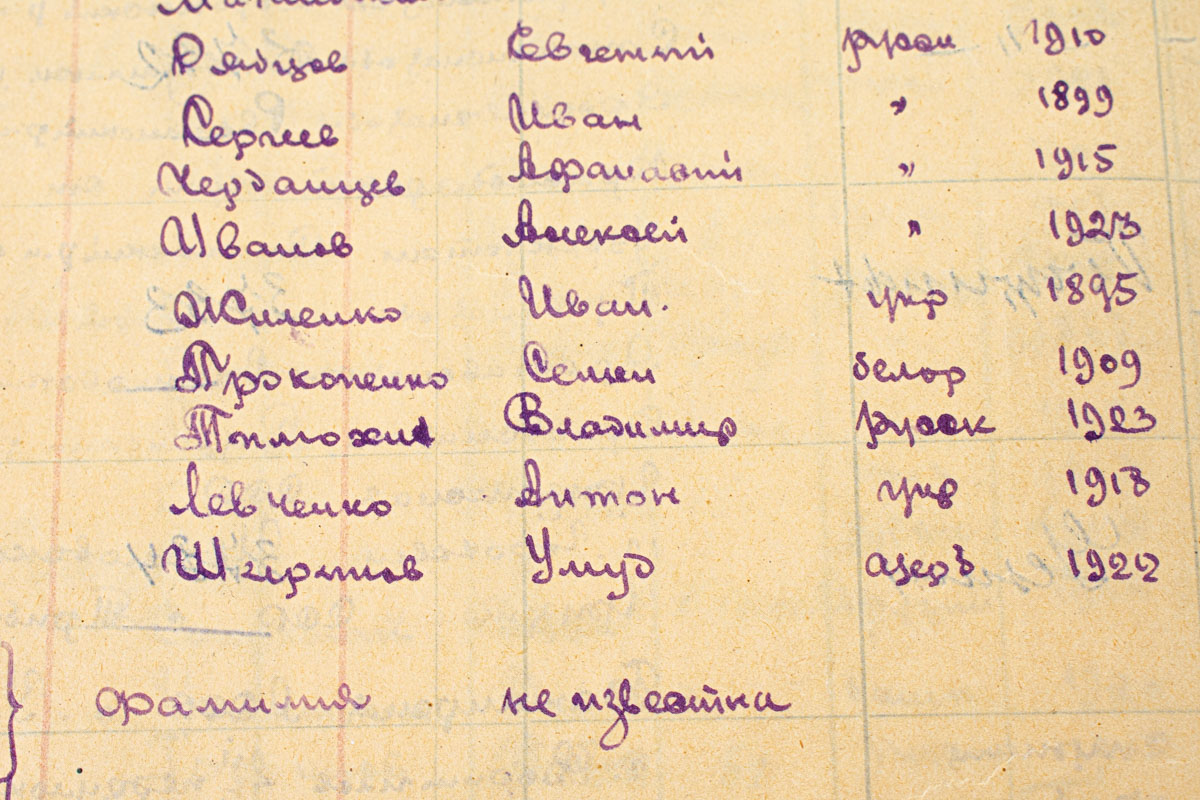 Евгений русск 1910
Иван " 1899
Черданцев Афанасий " 1915
Иванов Алексей " 1923
Жиленко Иван. укр 1895
Прокопенко Семен белор 1909
Тимохин Владимир русск 1923
Левченко Антон укр 1918
Умуд азерб 1922
фамилия не известна